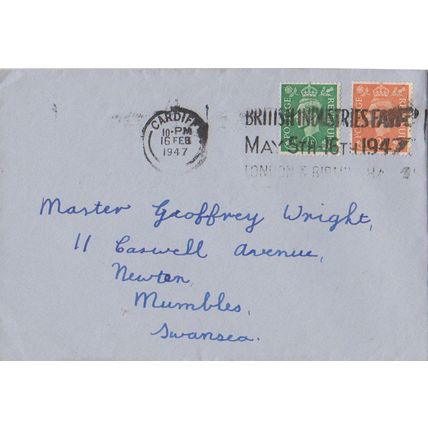 CARDIFF
10-PM
16 FEB
1947
POSTAGE REVENUE
POSTAGE REVENUE
BRITISH INDUSTRIES FAIR
MAY 5TH-16TH 1947
LONDON &
Master Geoffrey Wright,
11 Caswell Avenue,
Newton,
Mumbles,
Swansea.